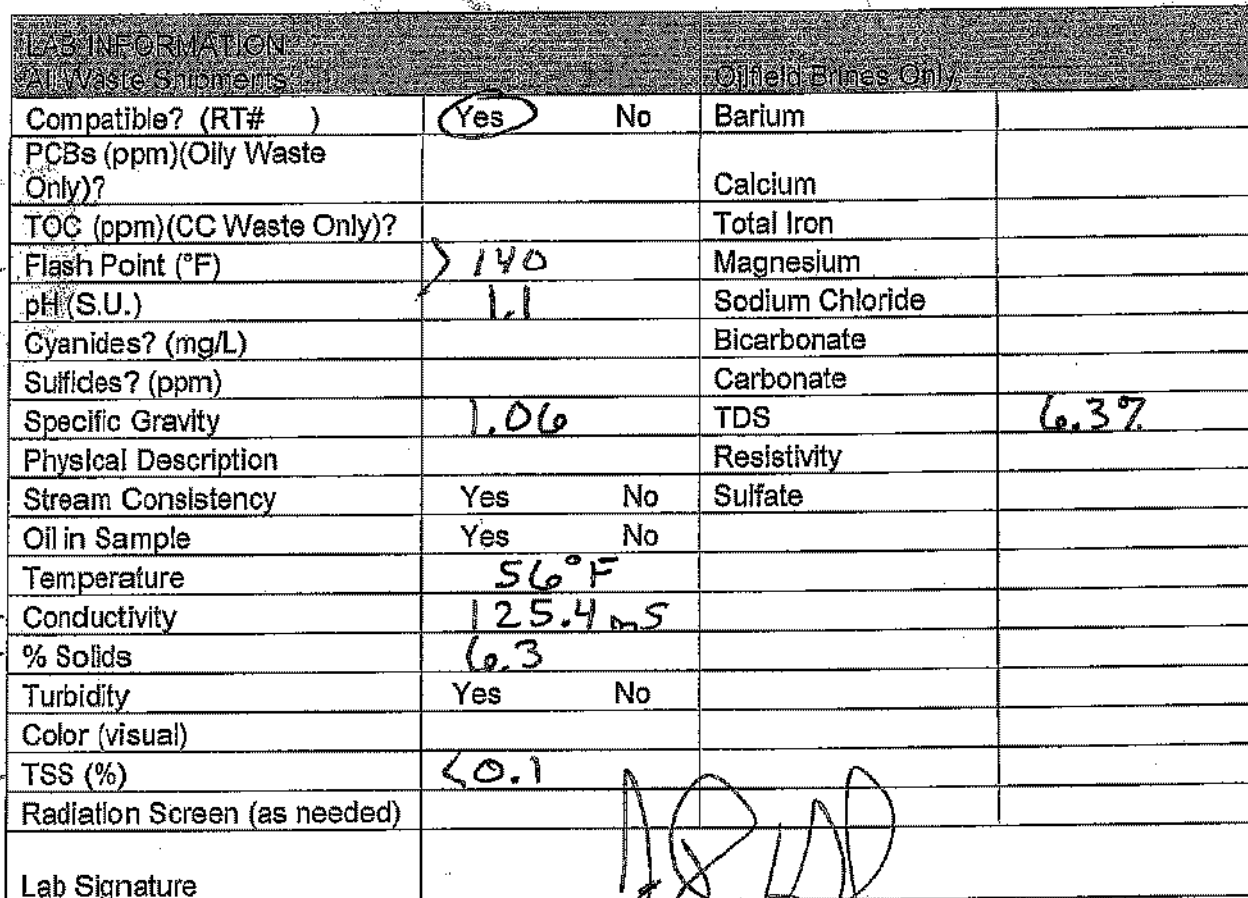 LAB INFORMATION
All Waste Shipments Oilfield Brines Only
Compatible? (RT# ) Yes No Barium
PCBs (ppm)(Oily Waste
Only)? Calcium
TOC (ppm)(CC Waste Only)? Total Iron
Flash Point (°F) > 140 Magnesium
pH (S.U.) 1.1 Sodium Chloride
Cyanides? (mg/L) Bicarbonate
Sulfides? (ppm) Carbonate
Specific Gravity 1.06 TDS 6.3%
Physical Description Resistivity
Stream Consistency Yes No Sulfate
Oil in Sample Yes No
Temperature 56°F
Conductivity 125.4 mS
% Solids 6.3
Turbidity Yes No
Color (visual)
TSS (%) <0.1
Radiation Screen (as needed)
Lab Signature